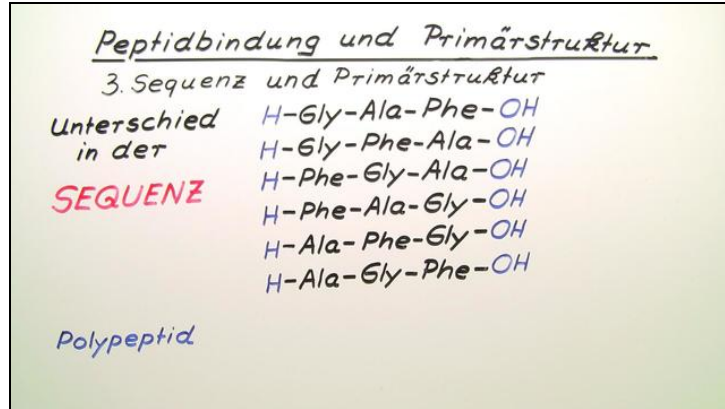 Peptidbindung und Primärstruktur
3. Sequenz und Primärstruktur
Unterschied
in der
SEQUENZ
H-Gly-Ala-Phe-OH
H-Gly-Phe-Ala-OH
H-Phe-Gly-Ala-OH
H-Phe-Ala-Gly-OH
H-Ala-Phe-Gly-OH
H-Ala-Gly-Phe-OH
Polypeptid